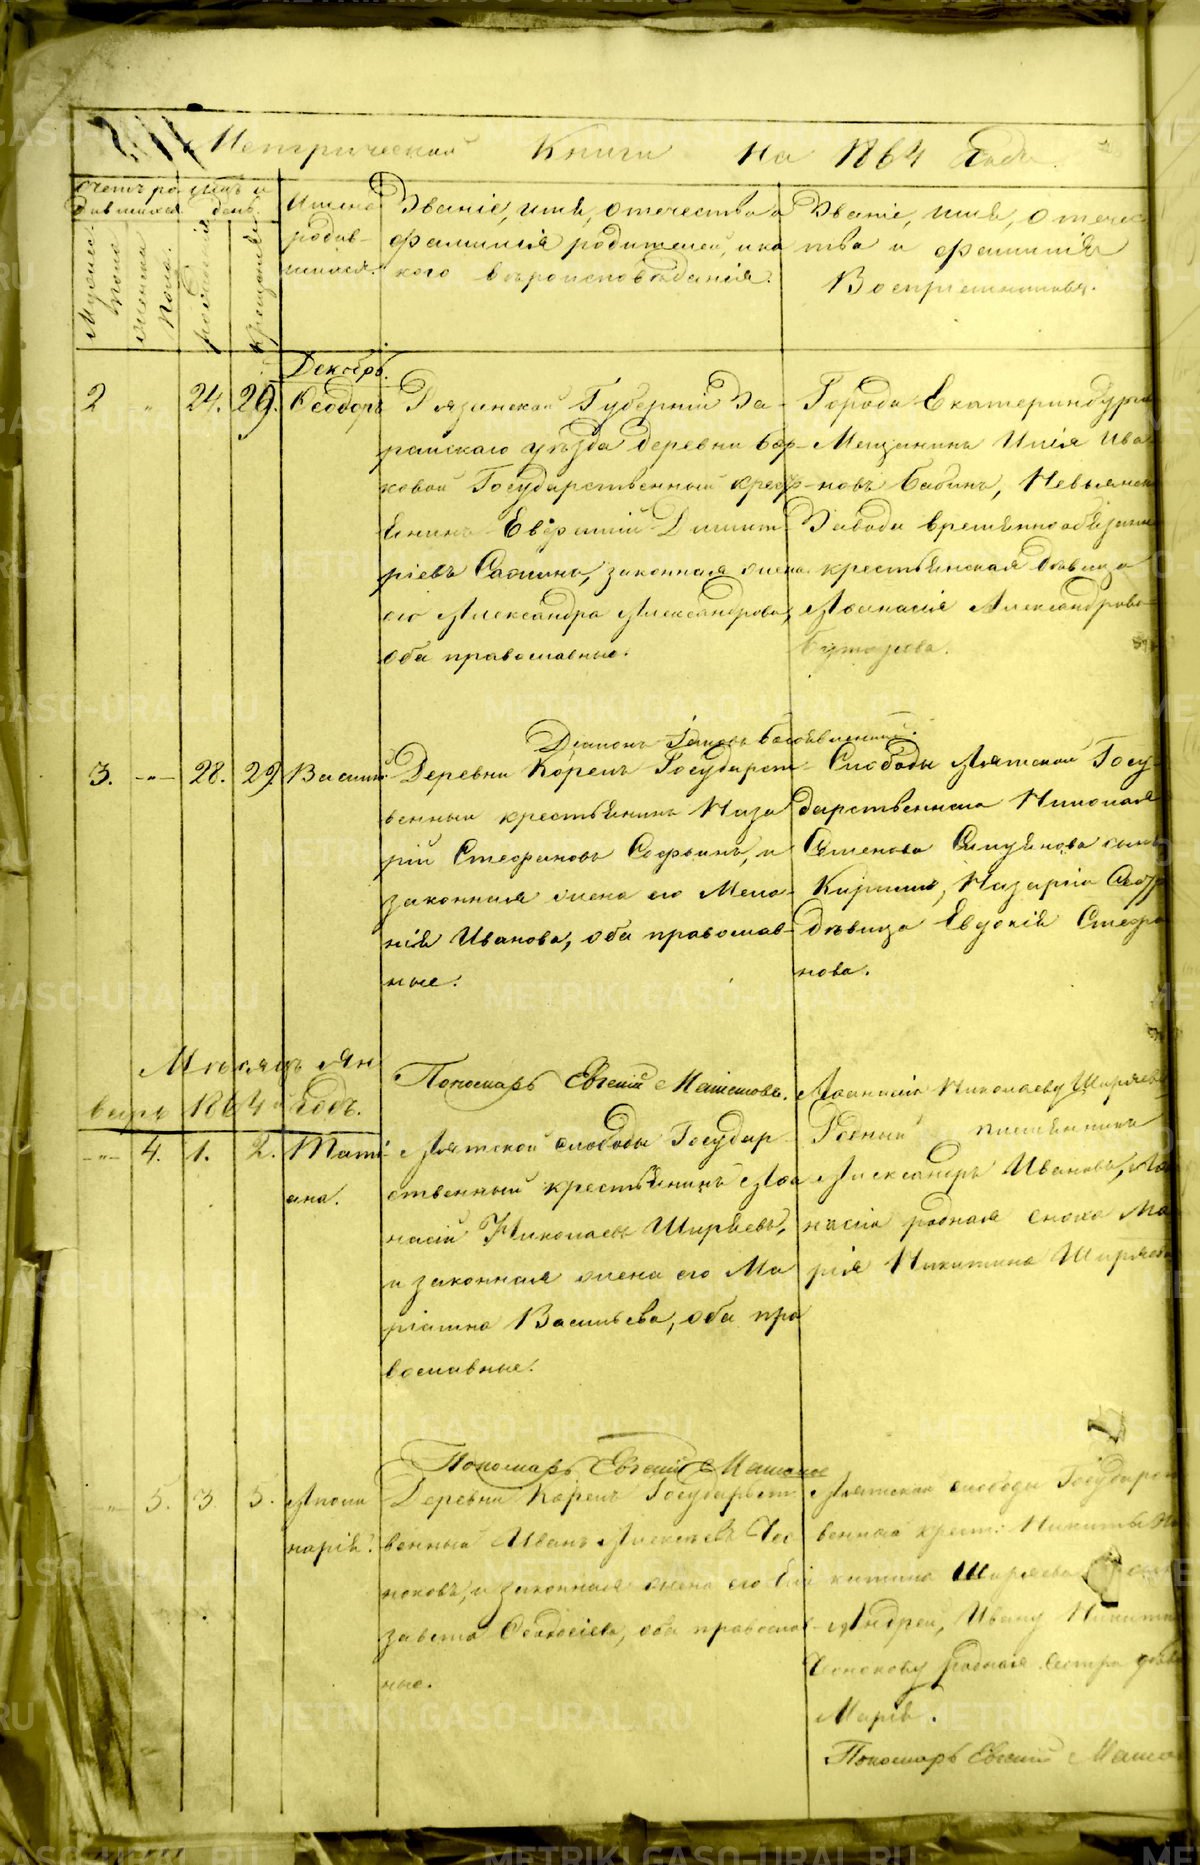 Метрической Книги на 1864 годъ.
Счетъ ро дившихся
Мужеска пола
женска пола.
Мѣсяцъ и день
рожденія
крещенія
Имена родив-
шихся.
Званіе, имя, отечество и
фамилія родителей, и ка
кого вѣроисповѣданія.
Званіе, имя, отечес
тво и фамилія
Воспріемниковъ.
Декабрь.
2 " 24. 29. Ѳеодоръ
Рязанской Губерніи За-
райскаго уѣзда деревни Бар-
ковой Государственный крест-
янинъ Евѳимій Димит
ріевъ законная жена
его Александра Александрова,
оба православные.
Города Екатеринбурга
Мещанинъ Илія Ива
новъ Бабинъ, Невьянск
Завода временнообязан
крестьянская дѣвица
Аѳанасія Александрова
Дьяконъ Іаковъ
3. -"- 28. 29. Василій
Деревни Корелъ Государст
венный крестьянинъ Наза
рій Стефановъ и
законная жена его Мела-
нія Иванова, оба православ-
ные.
Слободы Аятской Госу-
дарственнаго Николая
Семенова сынъ
Кирилъ, Назарія
дѣвица Евдокія Стефа
нова.
Мѣсяцъ Ян
варь 1864 годъ.
Пономарь Евгеній
-"- 4. 1. 2. Тати
ана.
Аятской слободы Государ
ственный крестьянинъ Аѳа
насій Николаевъ Ширяевъ,
и законная жена его Ма
ріамна Васильева, оба пра
вославные.
Аѳанасію Николаеву Ширяеву
Родный племянникъ
Александръ Ивановъ, Аѳа
насія родная сноха Ма
рія Никитина Ширяева
Пономарь Евгеній
-"- 5. 3. 5. Аполи
нарія.
Деревни Корелъ Государст
венный Иванъ Алексѣевъ
и законная жена его Ели
завета Ѳеодосіева, оба православ
ные.
Аятской слободы Государст
веннаго крест: Никиты Ни
китина Ширяева
Андрей, Ивану Никитину
родная сестра дѣви
Марія.
Пономарь Евгеній